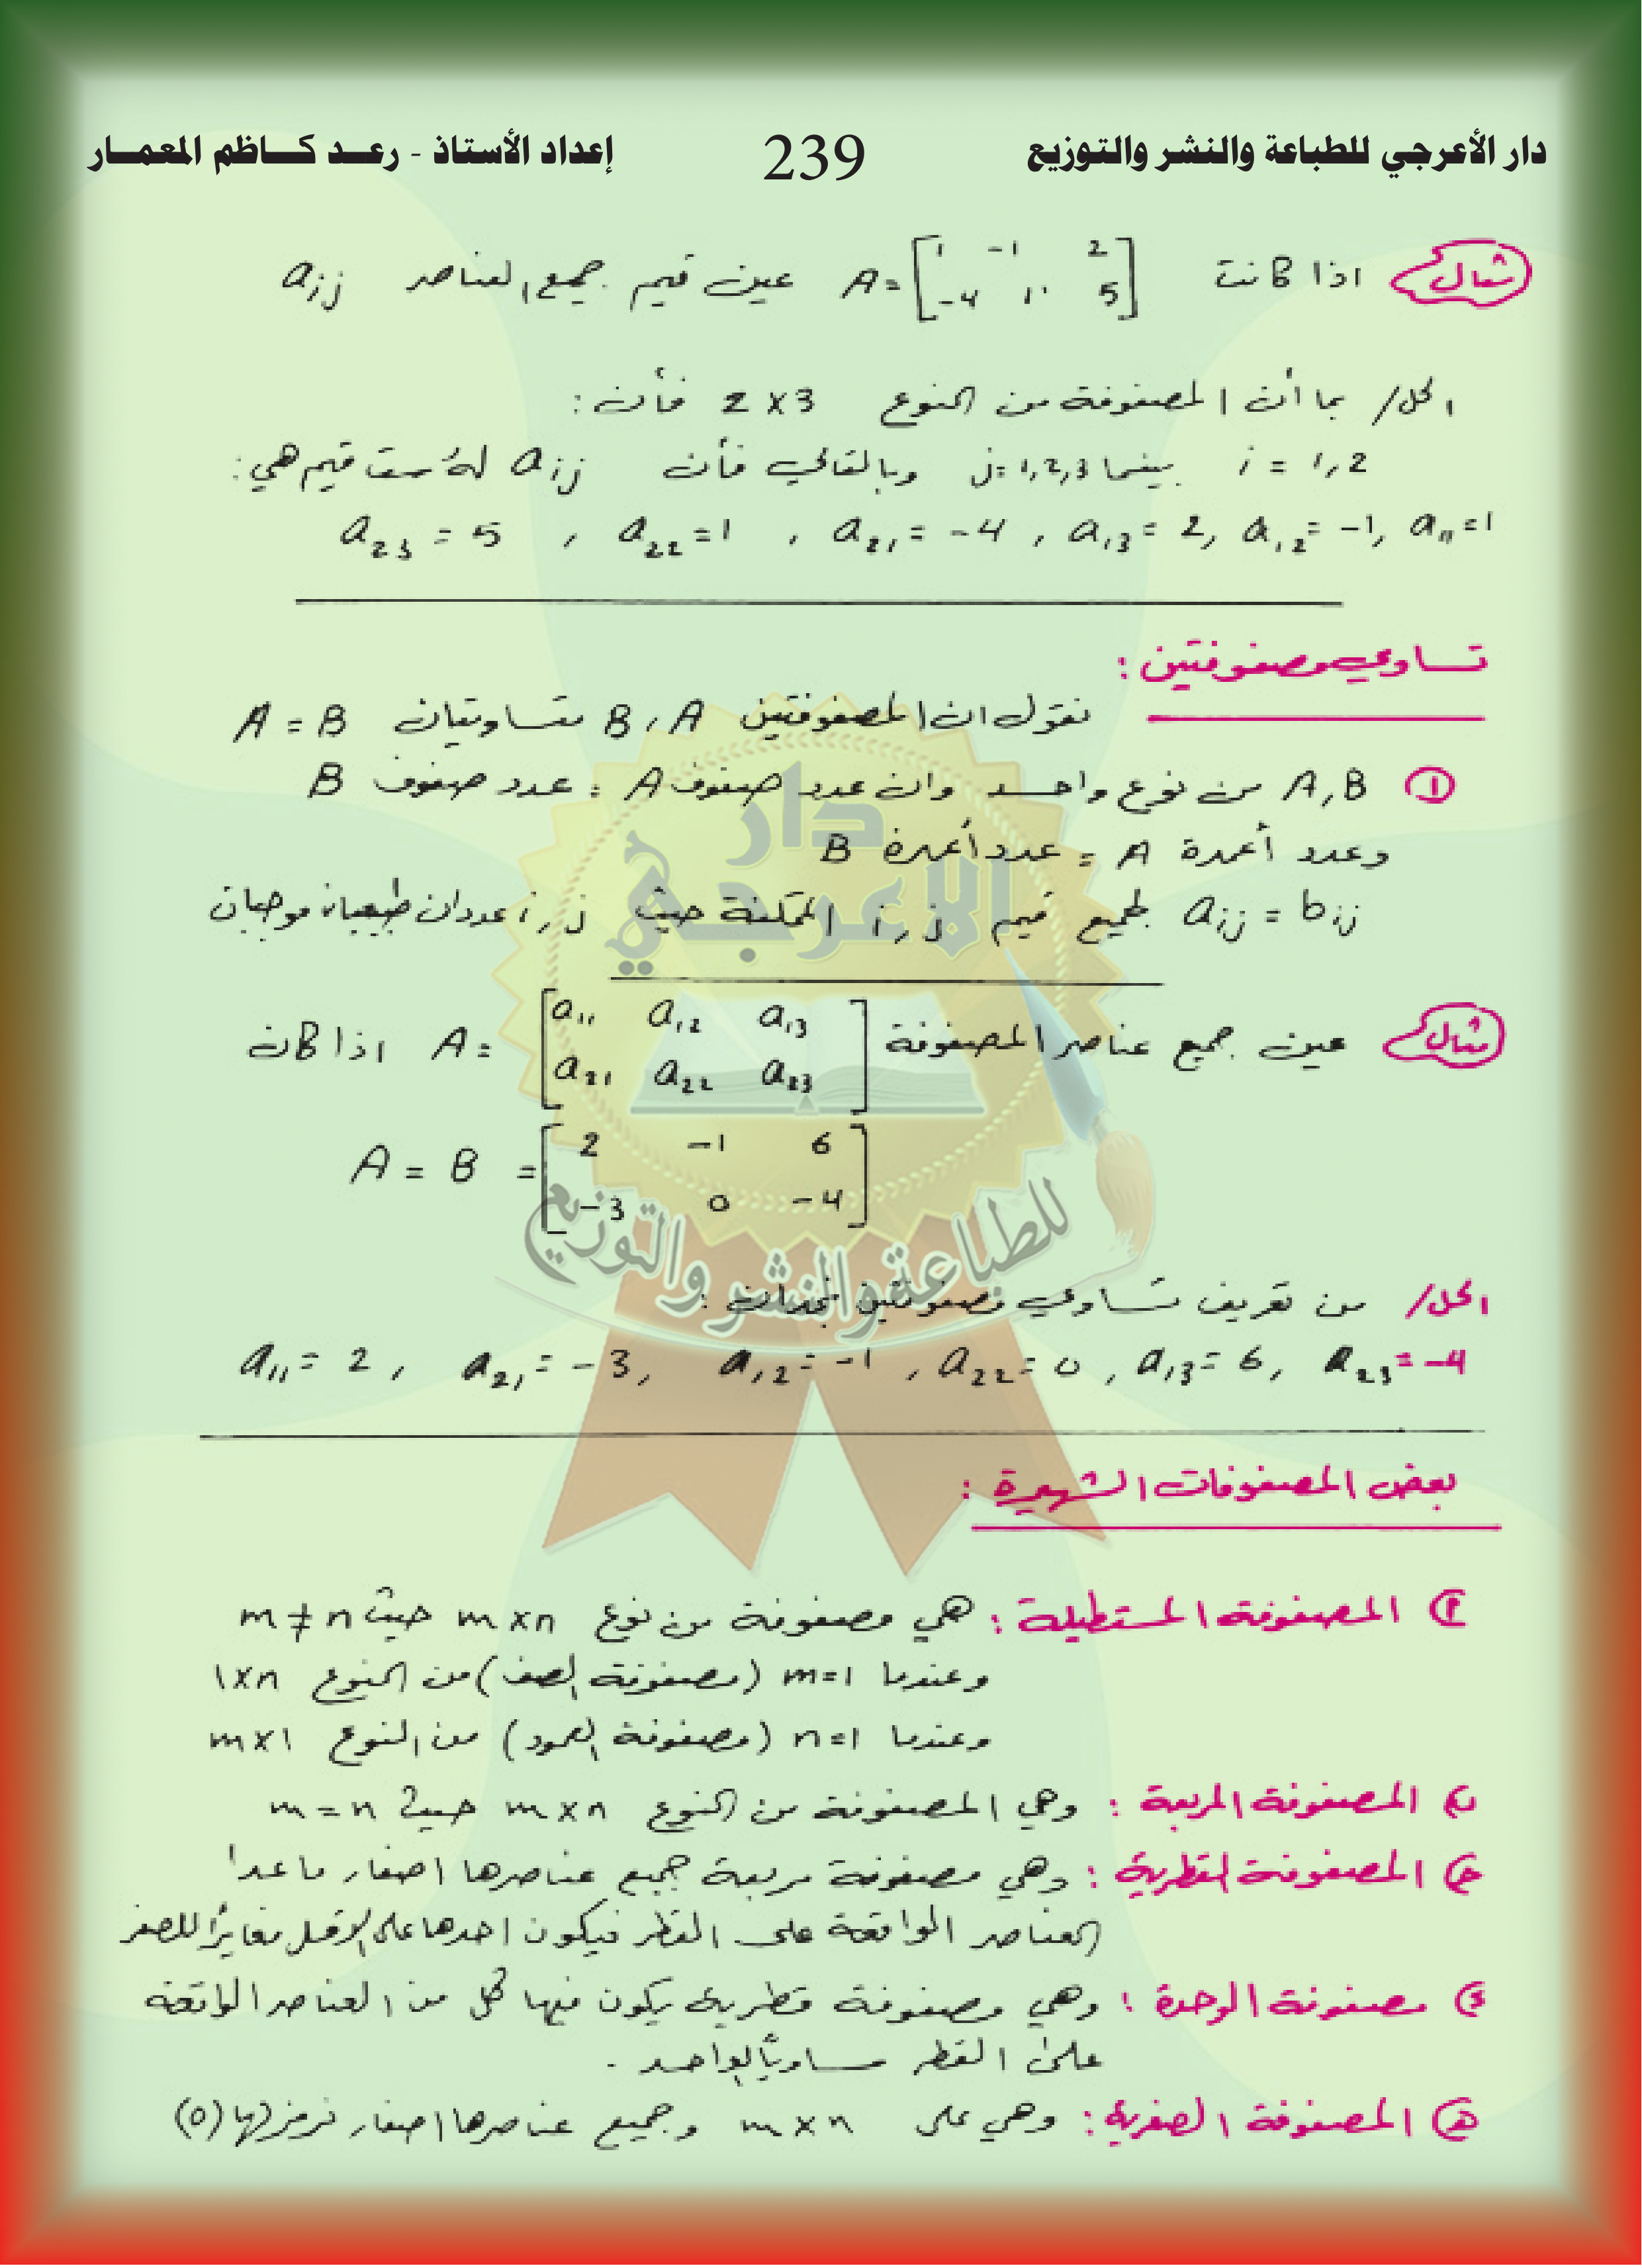 دار الأعرجي للطباعة والنشر والتوزيع 239 إعداد الأستاذ - رعد كاظم المعمار
مثال اذا كانت A = [1 -1 2 عين قيم جميع العناصر aij
-4 1 5]
الحل/ بما أن المصفوفة من النوع 2 x 3 فأن :
i = 1,2 بينما j=1,2,3 وبالتالي فأن aij له ست قيم هي :
a11=1 , a12=-1 , a13=2 , a21=-4 , a22=1 , a23=5
تساوي مصفوفتين :
نقول ان المصفوفتين A , B متساويتان A = B
① A , B من نوع واحد وان عدد صفوف A = عدد صفوف B
وعدد أعمدة A = عدد أعمدة B
aij = bij لجميع قيم i , j الممكنة حيث i , j عددان طبيعيان موجبان
مثال عين جميع عناصر المصفوفة A = [a11 a12 a13 اذا كان
a21 a22 a23]
A = B = [2 -1 6
-3 0 -4]
الحل/ من تعريف تساوي مصفوفتين نجد ان :
a11 = 2 , a21 = -3 , a12 = -1 , a22 = 0 , a13 = 6 , a23 = -4
بعض المصفوفات الشهيرة :
أ) المصفوفة المستطيلة : هي مصفوفة من نوع m x n حيث m ≠ n
وعندما m=1 (مصفوفة الصف) من النوع 1 x n
وعندما n=1 (مصفوفة العمود) من النوع m x 1
ب) المصفوفة المربعة : وهي المصفوفة من النوع m x n حيث m = n
ج) المصفوفة القطرية : وهي مصفوفة مربعة جميع عناصرها اصفار ما عدا
العناصر الواقعة على القطر فيكون احدها على الاقل مغايرًا للصفر
د) مصفوفة الوحدة : وهي مصفوفة قطرية يكون فيها كل من العناصر الواقعة
على القطر مساويًا لواحد .
هـ) المصفوفة الصفرية : وهي على m x n وجميع عناصرها اصفار نرمز لها (0)
دار
الاعرجي
للطباعة والنشر والتوزيع